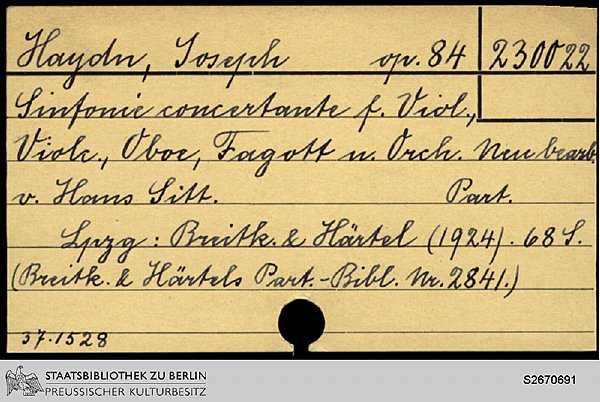 Haydn, Joseph op. 84 230022
Sinfonie concertante f. Viol.,
Violc., Oboe, Fagott u. Orch. Neubearb.
v. Hans Sitt. Part.
Lpzg: Breitk. & Härtel (1924). 68 S.
(Breitk. & Härtels Part.-Bibl. Nr. 2841.)
37.1528
STAATSBIBLIOTHEK ZU BERLIN
PREUSSISCHER KULTURBESITZ
S2670691